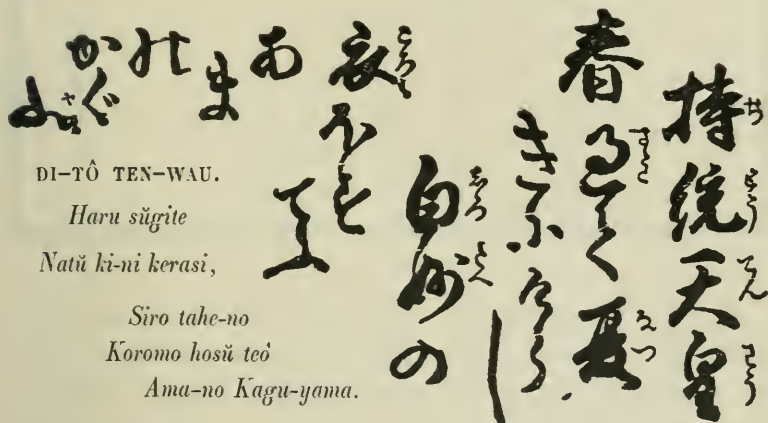 持統天皇
ぢとうてんわう
春過て夏
すぎ なつ
きにけらし
白妙の
しろ たへ
衣ほす
ころも
てふ
あ
ま
の
かぐ
山
やま
DI-TÔ TEN-WAU.
Haru sŭgite
Natŭ ki-ni kerasi,
Siro tahe-no
Koromo hosŭ teò
Ama-no Kagu-yama.